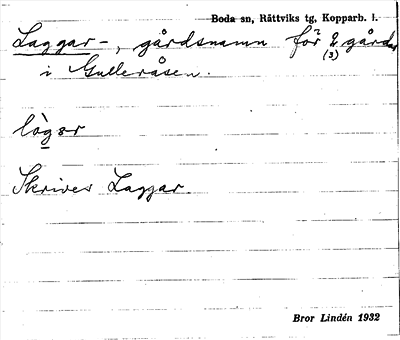 Boda sn, Rättviks tg, Kopparb. l.
Laggar-, gårdsnamn för 2 gårdar
(3)
i Gulleråsen.
lòg୫r
Skrives Laggar.
Bror Lindén 1932